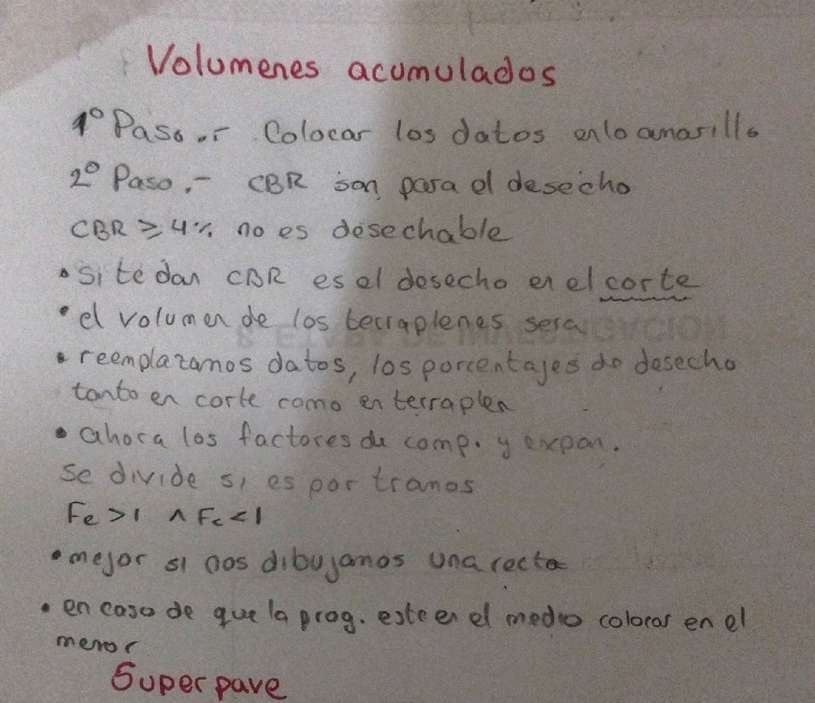 Volumenes acumulados
1º Paso.- Colocar los datos en lo amarillo
2º Paso.- CBR son para el desecho
CBR ≥ 4% no es desechable
• Si te dan CBR es el desecho en el corte
• el volumen de los terraplenes sera
• reemplazamos datos, los porcentajes de desecho
tanto en corte como en terraplen
• ahora los factores de comp. y expan.
Se divide si es por tramos
Fe > 1 ∧ Fc < 1
• mejor si nos dibujamos una recta
• en caso de que la prog. este en el medio colocar en el
menor
Superpave